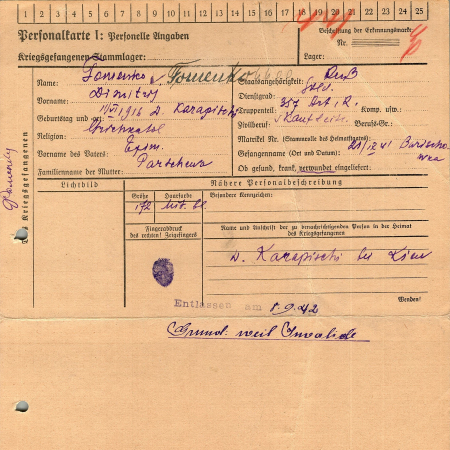 1 2 3 4 5 6 7 8 9 10 11 12 13 14 15 16 17 18 19 20 21 22 23 24 25
Personalkarte I: Personelle Angaben
Kriegsgefangenen-Stammlager:
Beschriftung der Erkennungsmarke
Nr.
Lager:
Name: Fomenko
Vorname: Dimitrij
Geburtstag und -ort: 11/VI 1916 D. Karapischi
Religion:
Vorname des Vaters: Efim
Familienname der Mutter:
Staatsangehörigkeit: Russ
Dienstgrad: Sold.
Truppenteil: 357 Art. R. Komp. usw.:
Zivilberuf: Berufs-Gr.:
Matrikel Nr. (Stammrolle des Heimatstaates):
Gefangennahme (Ort und Datum): 21/IX 41
Ob gesund, krank, verwundet eingeliefert:
Des Kriegsgefangenen
Lichtbild
Nähere Personalbeschreibung
Größe
Haarfarbe
Besondere Kennzeichen:
172
Fingerabdruck
des rechten! Zeigefingers
Name und Anschrift der zu benachrichtigenden Person in der Heimat
des Kriegsgefangenen
D. Karapischi bei Kiew
Wenden!
Entlassen am 1.9.42
Grund: weil Invalide